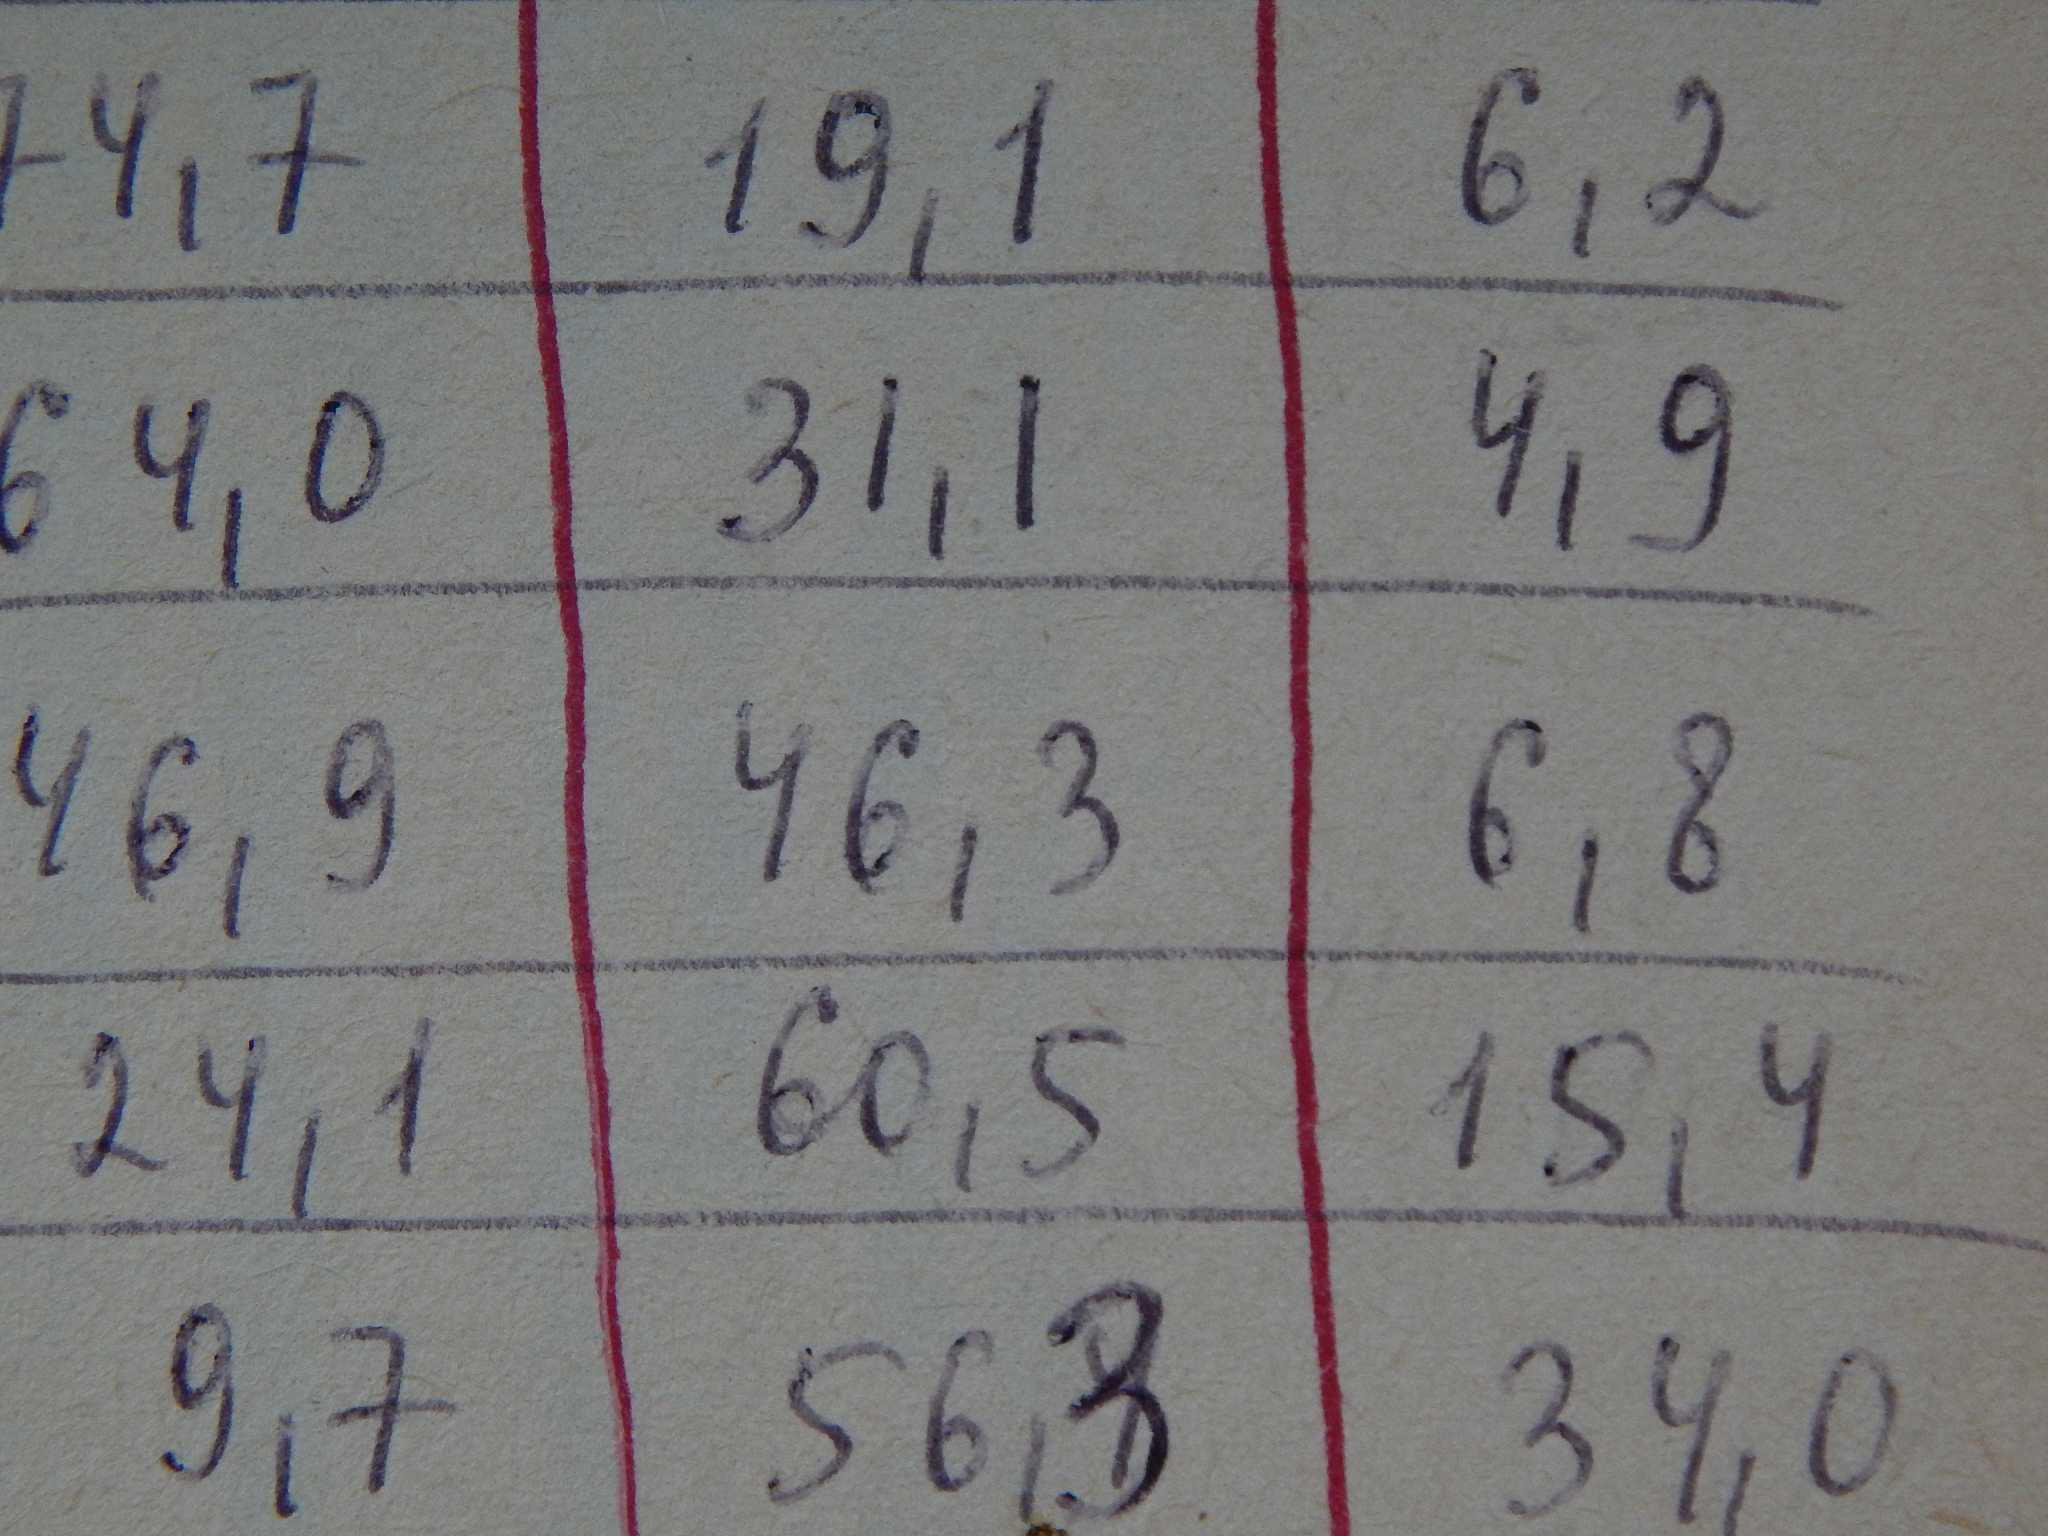 74,7 19,1 6,2
64,0 31,1 4,9
46,9 46,3 6,8
24,1 60,5 15,4
9,7 56,3 34,0